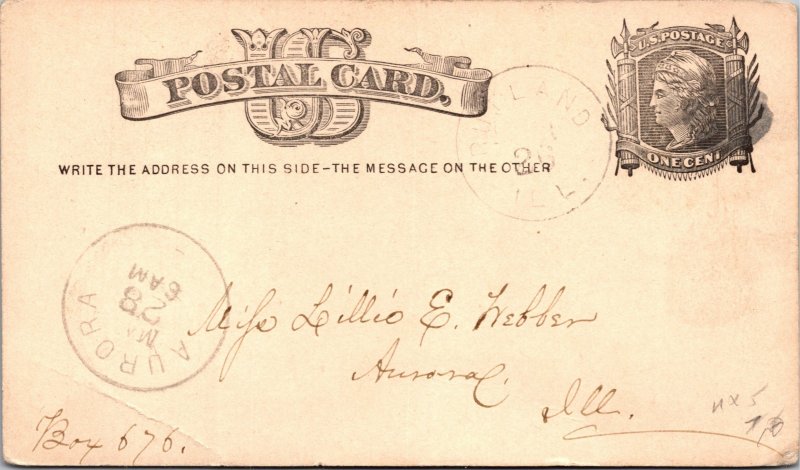 US
POSTAL CARD.
U.S. POSTAGE
ONE CENT
WRITE THE ADDRESS ON THIS SIDE-THE MESSAGE ON THE OTHER
ILL.
AURORA
MA
28
6 AM
Miss Lillie E. Webber
Aurora
Ill.
Box 676.